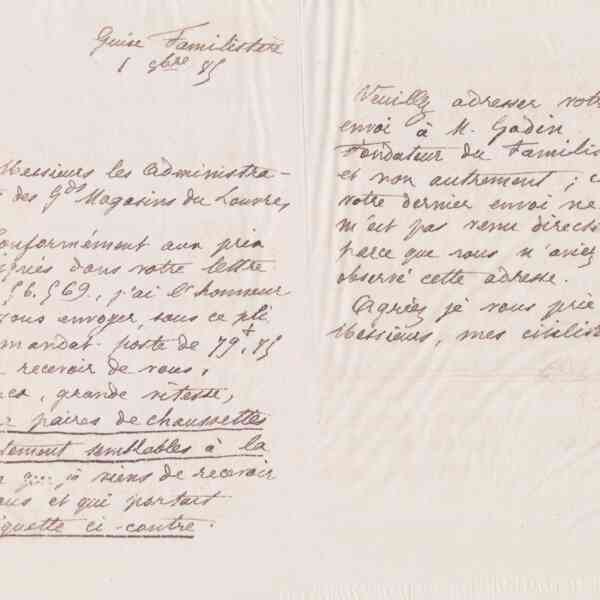 Guise Familistère
1 8bre 85
Messieurs les Administra-
des Gds Magasins du Louvre,
Conformément aux prix
iqués dans votre lettre
56.569., j'ai l'honneur
vous envoyer, sous ce pli
mandat-poste de 79f,85
recevoir de vous,
grande vitesse,
paires de chaussettes
tement semblables à la
je viens de recevoir
ous et qui portait
iquette ci-contre.
Veuillez adresser votre
envoi à M. Godin
Fondateur du Familis
et non autrement; c
votre dernier envoi ne
m'est pas venu direct
parce que vous n'aviez
observé cette adresse.
Agréez je vous prie
Messieurs, mes civilit